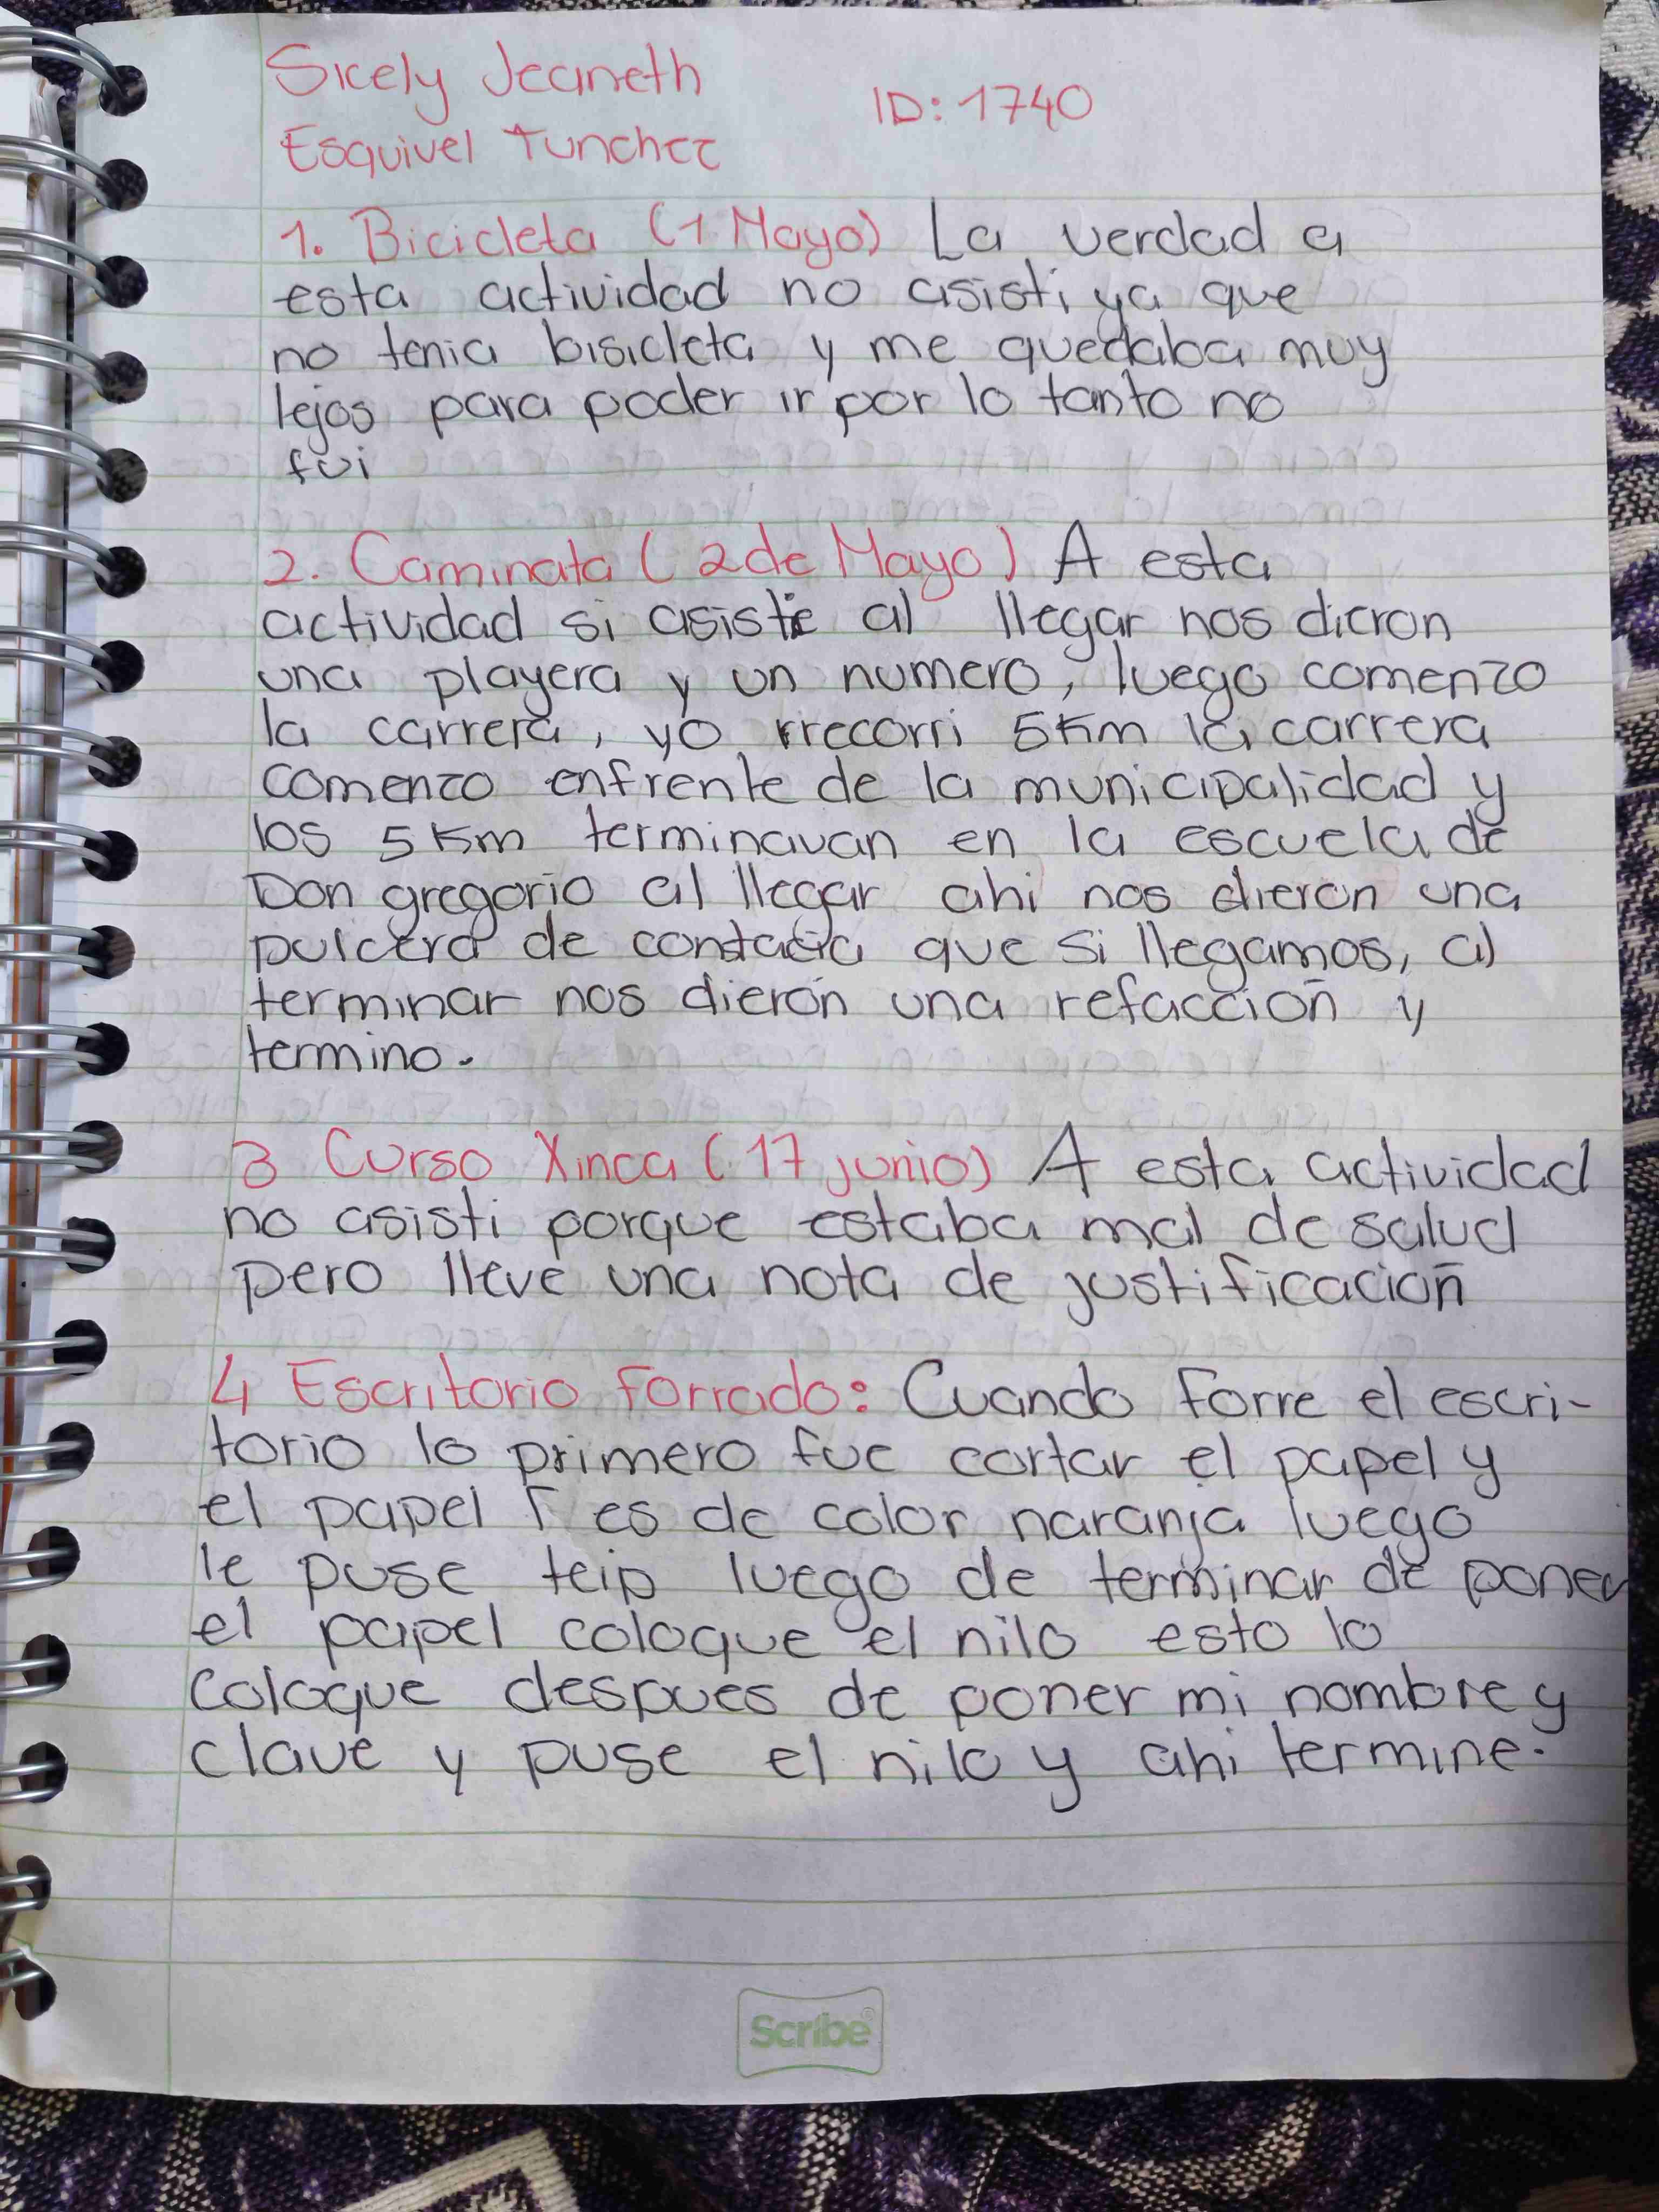 Sicely Jeaneth
ID: 1740
Esquivel Tunchez
1. Bicicleta (1 Mayo) La verdad a
esta actividad no asisti ya que
no tenia bisicleta y me quedaba muy
lejos para poder ir por lo tanto no
fui
2. Caminata (2 de Mayo) A esta
actividad si asisti al llegar nos dieron
una playera y un numero, luego comenzo
la carrera, yo rrecorri 5 Km la carrera
comenzo enfrente de la municipalidad y
los 5 Km terminavan en la escuela de
Don gregorio al llegar ahi nos dieron una
pulcera de que si llegamos, al
terminar nos dieron una refaccion y
termino.
3 Curso Xinca (17 junio) A esta actividad
no asisti porque estaba mal de salud
pero lleve una nota de justificacion
4 Escritorio Forrado: Cuando Forre el escri-
torio lo primero fue cortar el papel y
el papel F es de color naranja luego
le puse teip luego de terminar de poner
el papel coloque el nilo esto lo
coloque despues de poner mi nombre y
clave y puse el nilo y ahi termine.
Scribe